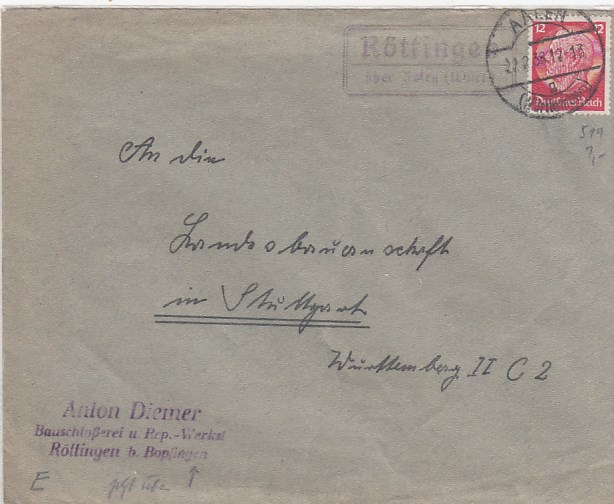 Röttingen
über Aalen (Württ)
AALEN
12 12
Deutsches Reich
519
An die
Landesbauernschaft
in Stuttgart
Württemberg II C 2
Anton Diemer
Bauschloßerei u Rep.-Werkst
Röttingen b. Bopfingen
E